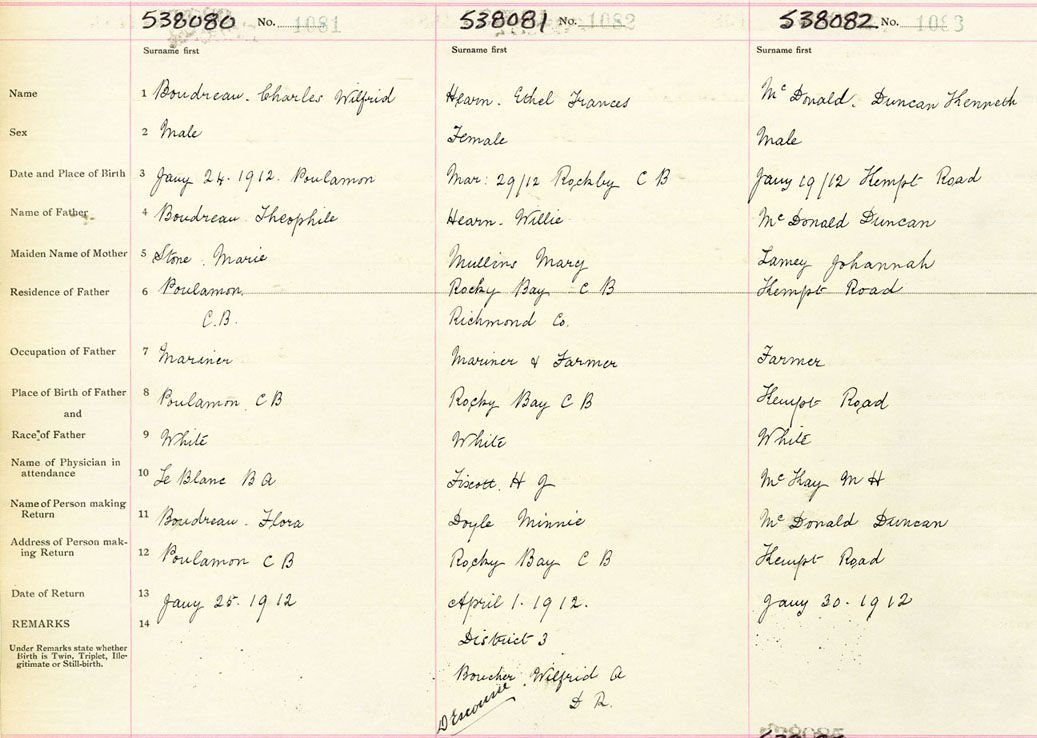 538080 No. 1081 538081 No. 1082 538082 No. 1083
Surname first Surname first Surname first
Name 1 Boudreau. Charles Wilfrid Hearn. Ethel Frances Mc Donald. Duncan Kenneth
Sex 2 Male Female Male
Date and Place of Birth 3 Jany 24. 1912. Poulamon Mar: 29/12 Rockby C B Jany 19/12 Kempt Road
Name of Father 4 Boudreau. Theophile Hearn. Willie Mc Donald Duncan
Maiden Name of Mother 5 Stone. Marie Mullins Mary Lamey Johannah
Residence of Father 6 Poulamon. Rocky Bay C B Kempt Road
C.B. Richmond Co.
Occupation of Father 7 Mariner Mariner & Farmer Farmer
Place of Birth of Father 8 Poulamon C B Rocky Bay C B Kempt Road
and
Race of Father 9 White White White
Name of Physician in
attendance 10 Le Blanc B A H J Mc Kay M H
Name of Person making
Return 11 Boudreau. Flora Doyle Minnie Mc Donald Duncan
Address of Person mak-
ing Return 12 Poulamon C B Rocky Bay C B Kempt Road
Date of Return 13 Jany 25. 1912 April 1. 1912. Jany 30. 1912
REMARKS 14
District 3
Under Remarks state whether
Birth is Twin, Triplet, Ille-
gitimate or Still-birth.
Boucher Wilfrid A
D R.
Descousse